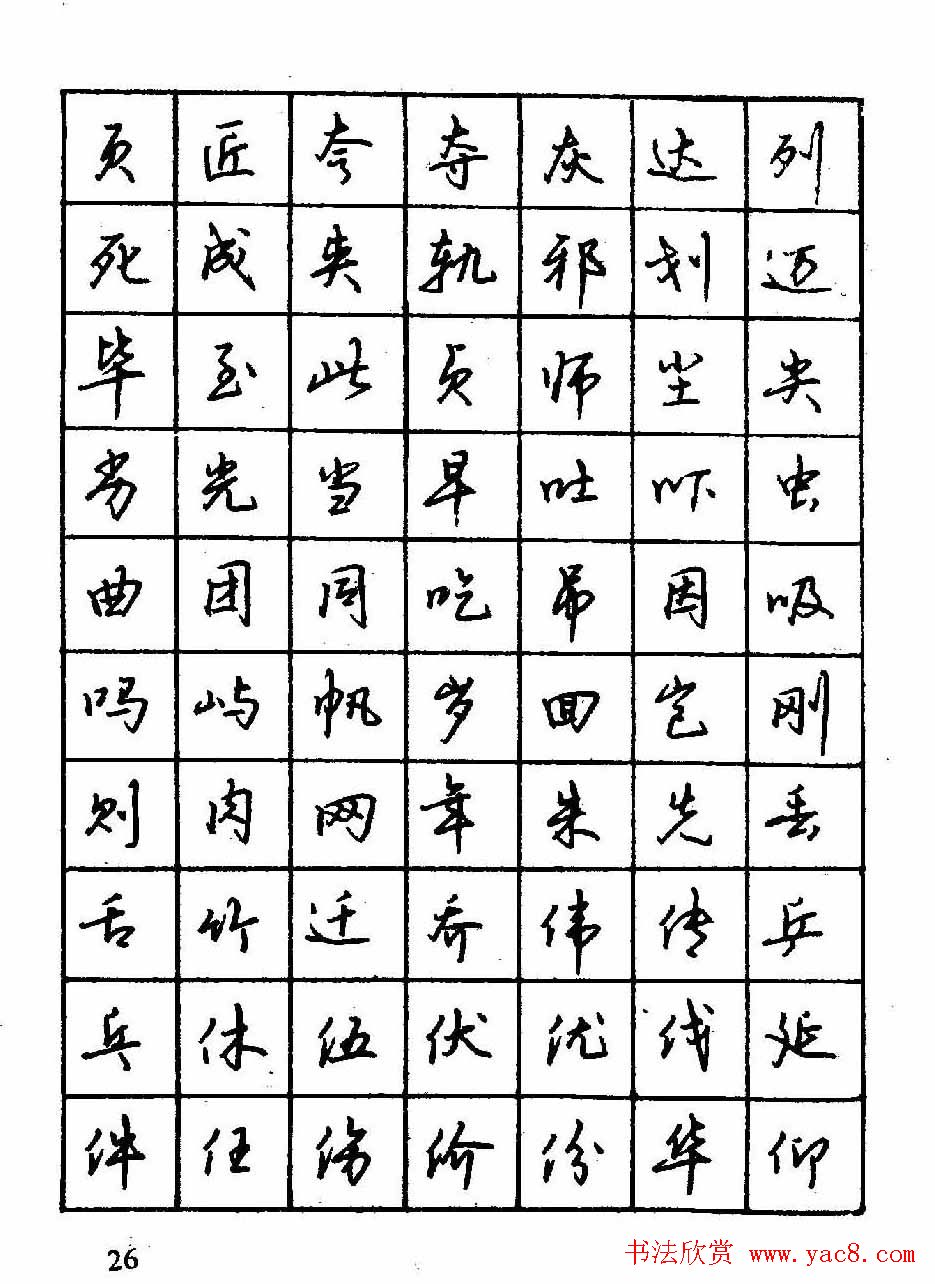 页匠夸夺灰达列
死成夹轨邪划迈
毕至此贞师尘尖
劣光当早吐吓虫
曲团同吃吊因吸
吗屿帆岁回岂刚
则肉网年朱先丢
舌竹迁乔伟传乒
乓休伍伏优伐延
件任伤价份华仰
26
书法欣赏 www.yac8.com